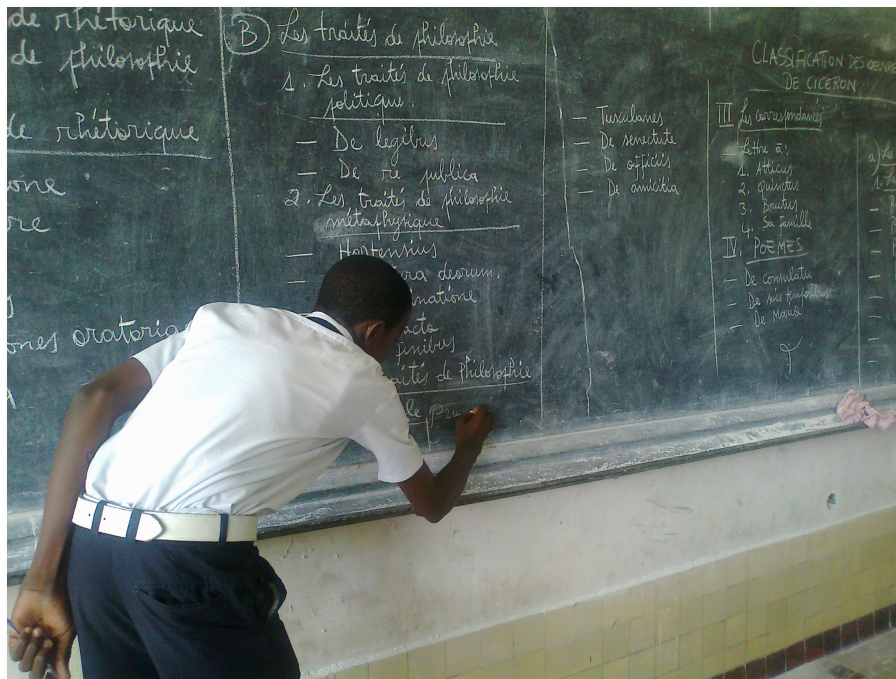 de rhétorique
de philosophie
de rhétorique
one
re
ones oratoriae
B Les traités de philosophie
1. Les traités de philosophie
politique.
— De legibus
— De re publica
2. Les traités de philosophie
métaphysique
— Hortensius
ra deorum,
natione
acto
finibus
aités de Philosophie
le
— Tusculanes
— De senectute
— De officiis
— De amicitia
CLASSIFICATION DES OEUVRE
DE CICERON
III Les correspondances
— Lettre à :
1. Atticus
2. Quinctus
3. Brutus
4. Sa famille
IV. POEMES
— De consulatu
— De suis temporibus
— De Mario
a)
1.